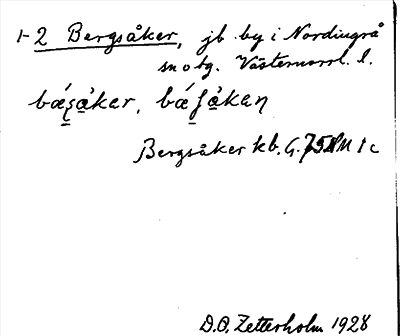 1-2 Bergsåker, jb by i Nordingrå
sn o tg. Västernorrl. l.
Bergsåker kb. G. 758 M 1 c
D.O. Zetterholm 1928